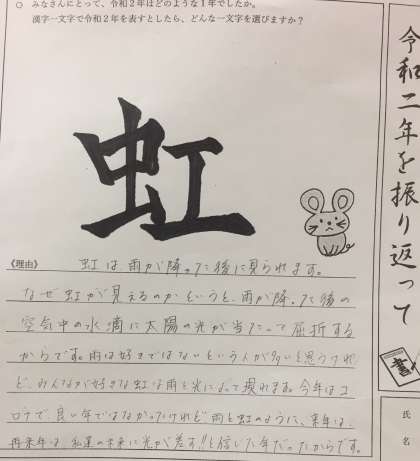 ○ みなさんにとって、令和２年はどのような１年でしたか。
漢字一文字で令和２年を表すとしたら、どんな一文字を選びますか？
令和二年を振り返って
虹
《理由》 虹は、雨が降った後に見られます。
なぜ虹が見えるのかというと、雨が降った後の
空気中の水滴に太陽の光が当たって屈折する
からです。雨は好きではないという人が多いと思うけれ
ど、みんなが好きな虹は雨と光によって現れます。今年はコ
ロナで、良い年ではなかったけれど雨と虹のように、来年は、
再来年は、私達の未来に光が差す!!と信じた年だったからです。
書
氏名